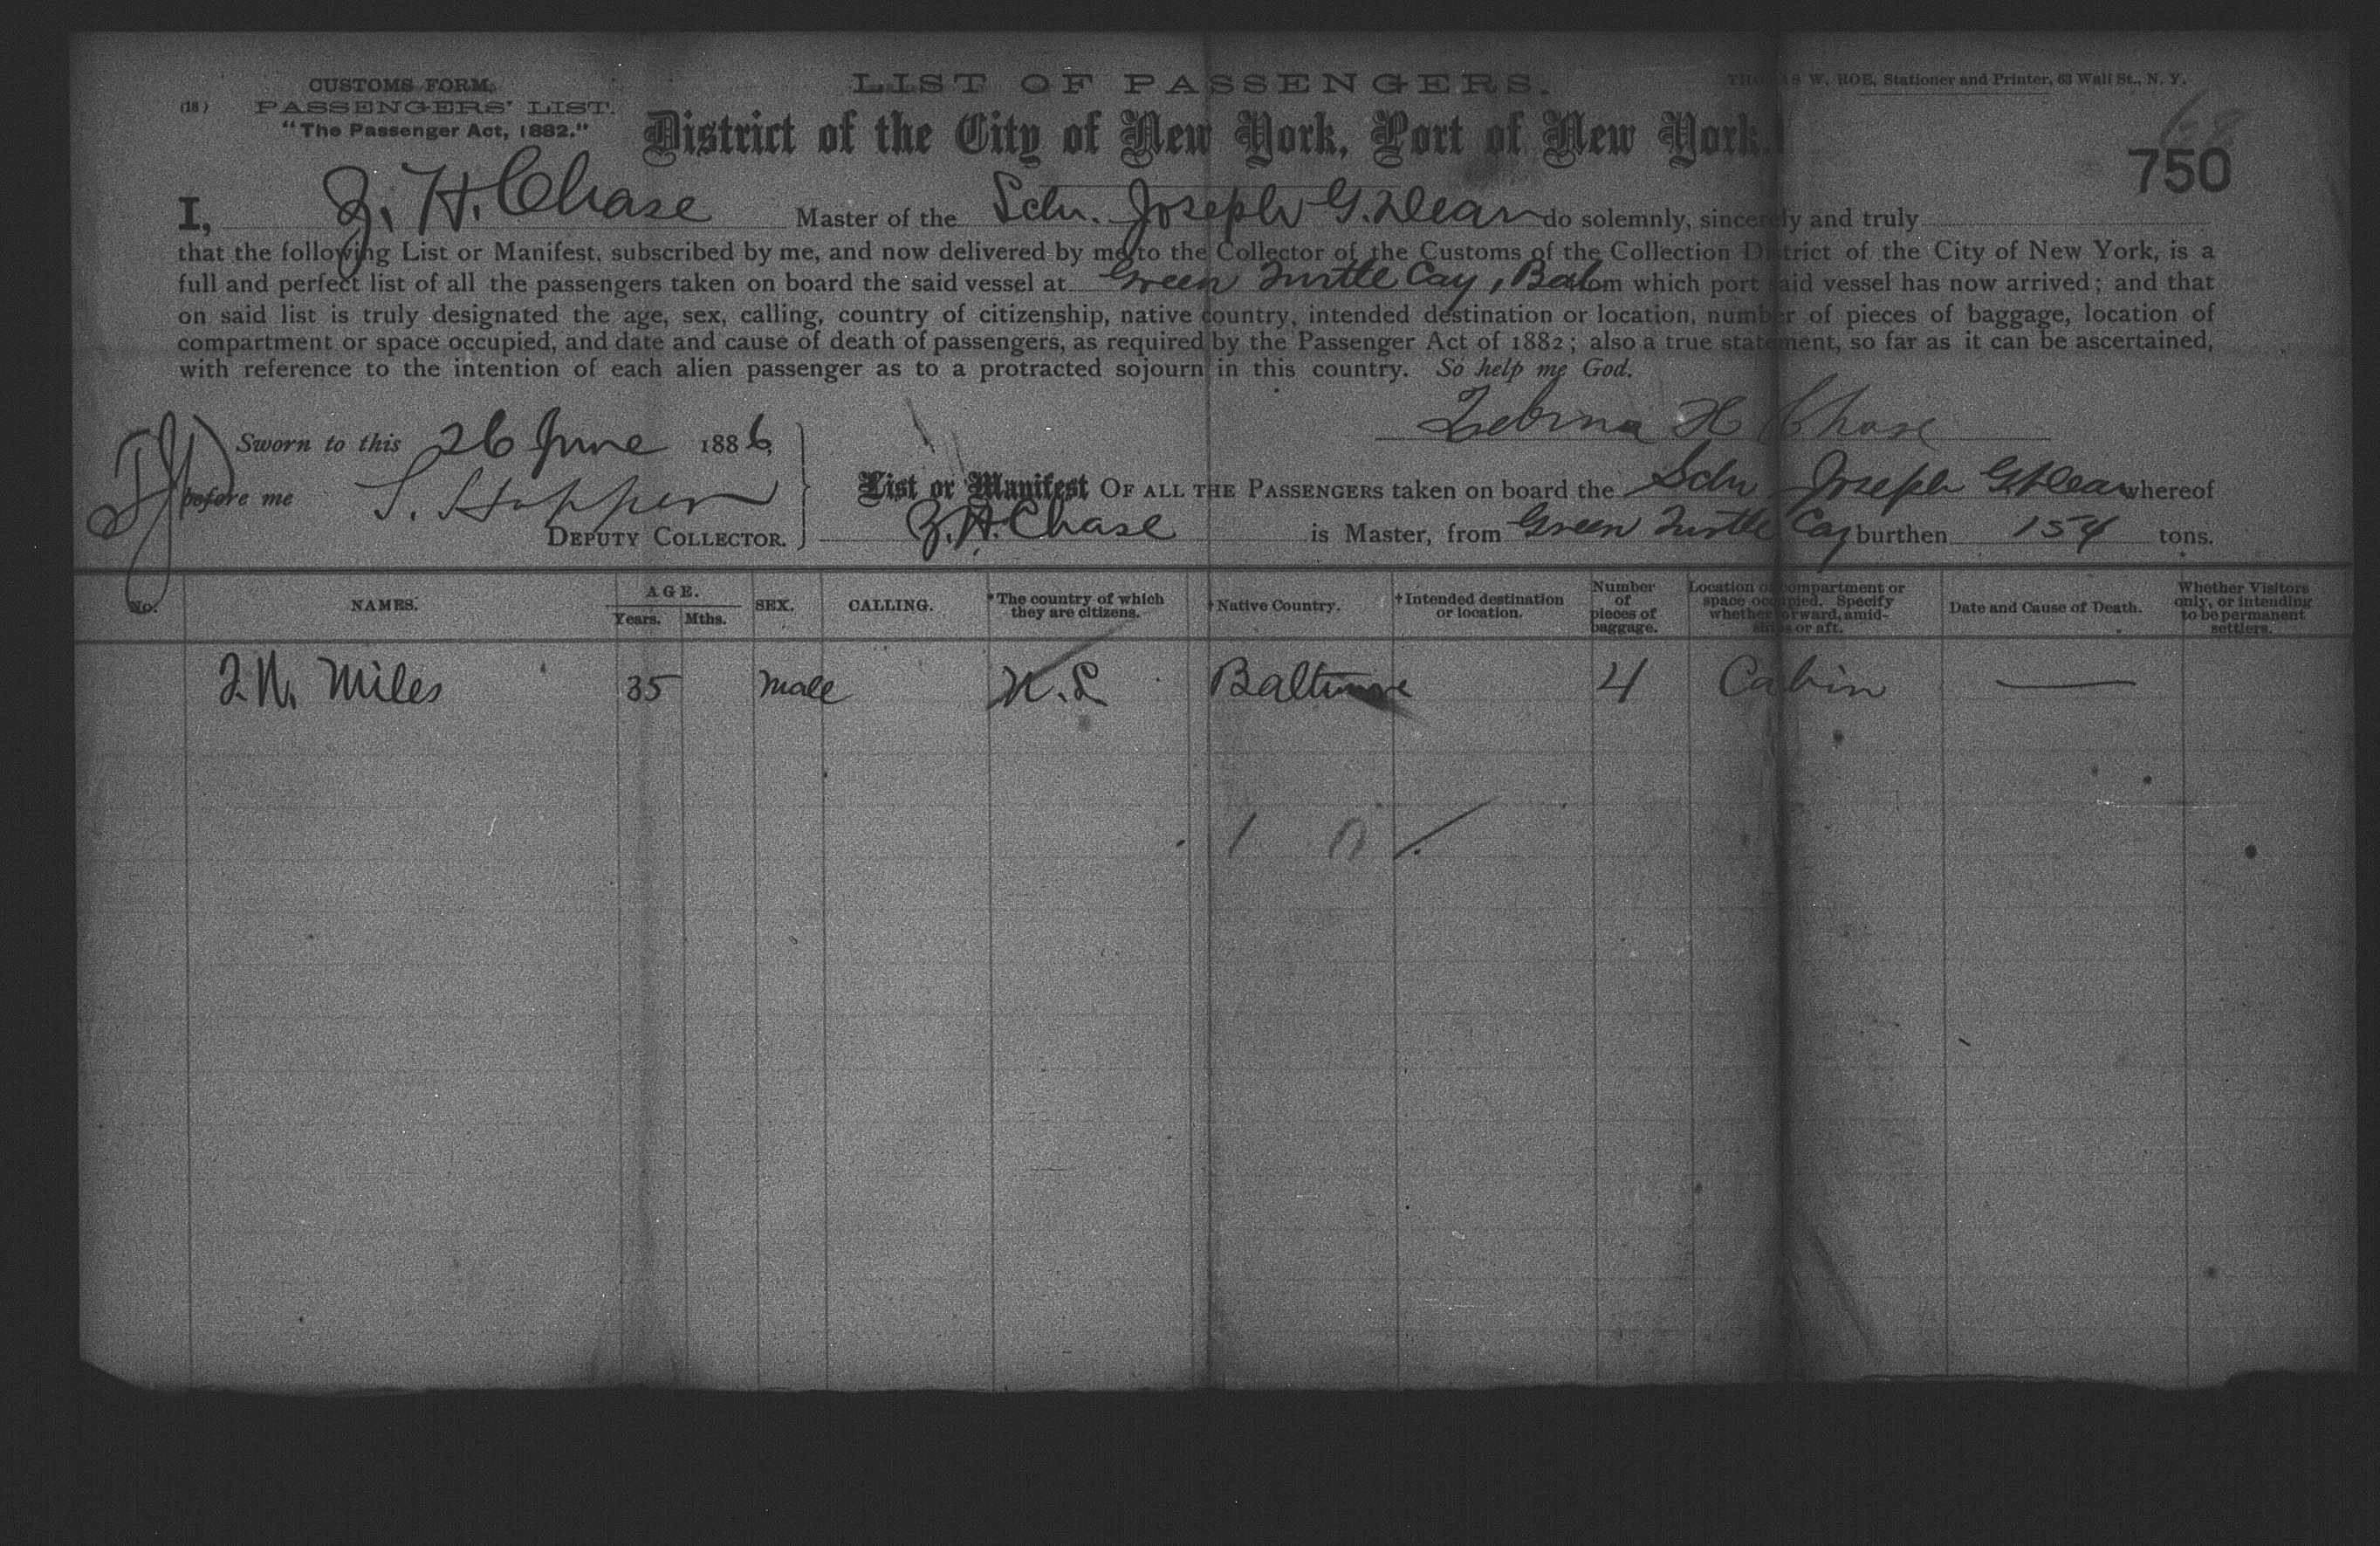 CUSTOMS FORM.
(18) PASSENGERS' LIST.
"The Passenger Act, 1882."
LIST OF PASSENGERS.
THOMAS W. ROE, Stationer and Printer, 63 Wall St., N. Y.
District of the City of New York, Port of New York.
68
750
I, Z. H. Chase Master of the Schr. Joseph G. Dean do solemnly, sincerely and truly
that the following List or Manifest, subscribed by me, and now delivered by me to the Collector of the Customs of the Collection District of the City of New York, is a
full and perfect list of all the passengers taken on board the said vessel at Green Turtle Cay, Bah from which port said vessel has now arrived; and that
on said list is truly designated the age, sex, calling, country of citizenship, native country, intended destination or location, number of pieces of baggage, location of
compartment or space occupied, and date and cause of death of passengers, as required by the Passenger Act of 1882; also a true statement, so far as it can be ascertained,
with reference to the intention of each alien passenger as to a protracted sojourn in this country. So help me God.
Zebina H Chase
Sworn to this 26 June 1886,
before me S. Hopper
DEPUTY COLLECTOR.
List or Manifest OF ALL THE PASSENGERS taken on board the Schr Joseph G Dean whereof
Z. H. Chase is Master, from Green Turtle Cay burthen 154 tons.
No. NAMES. AGE. Years. Mths. SEX. CALLING. *The country of which they are citizens. †Native Country. †Intended destination or location. Number of pieces of baggage. Location of compartment or space occupied. Specify whether forward, amidships or aft. Date and Cause of Death. Whether Visitors only, or intending to be permanent settlers.
Miles 35 Male Baltimore 4 Cabin —